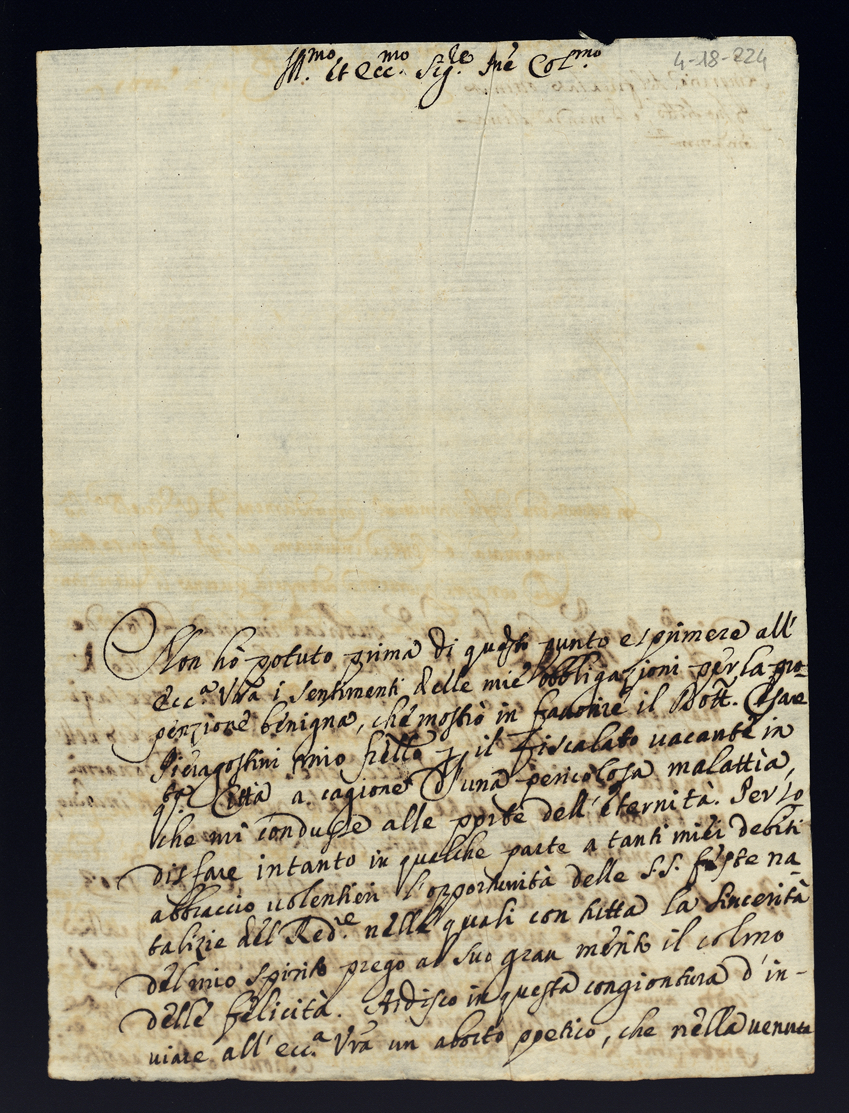 Ill.mo et Ecc.mo Sig.re Pne Col.mo
4-18-224
Non hò potuto prima di questo punto esprimere all'
Ecc.a Vra i sentimenti delle mie obbligazioni per la pro-
penzione benigna, che mostrò in favorire il Dott. Cesare
Pieragostini mio frello p il Fiscalato vacante in
qta Città a cagione d'una pericolosa malattia,
che mi condusse alle porte dell'eternità. Per so
disfare intanto in qualche parte a tanti miei debiti
abbraccio volentieri l'opportunità delle S.S. feste na-
talizie del Red.e nelle quali con tutta la sincerità
del mio spirito prego al suo gran merito il colmo
delle felicità. Ardisco in questa congiontura d'in-
viare all'ecc.a Vra un aborto poetico, che nella venuta